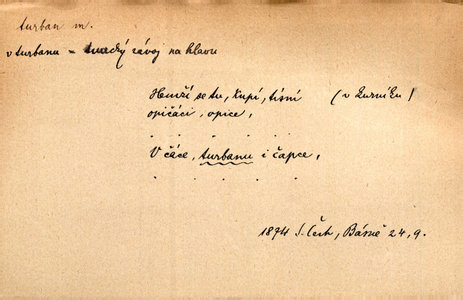 turban m.
v turbanu = turecký závoj na hlavu
Hemží se tu, kupí, tísní (v kurníku)
opičáci, opice,
. . . . .
V čáce, turbanu i čapce,
. . . . .
1874 S. Čech, Básně 24, 9.